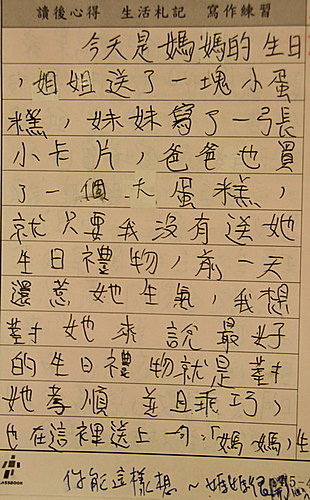 讀後心得 生活札記 寫作練習
今天是媽媽的生日
，姐姐送了一塊小蛋
糕，妹妹寫了一張
小卡片，爸爸也買
了一個大蛋糕，
就只要我沒有送她
生日禮物，前一天
還惹她生氣，我想
對她來說最好
的生日禮物就是對
她孝順並且乖巧，
也在這裡送上一句:「媽媽，生
你能這樣想～媽媽
CLASSBOOK